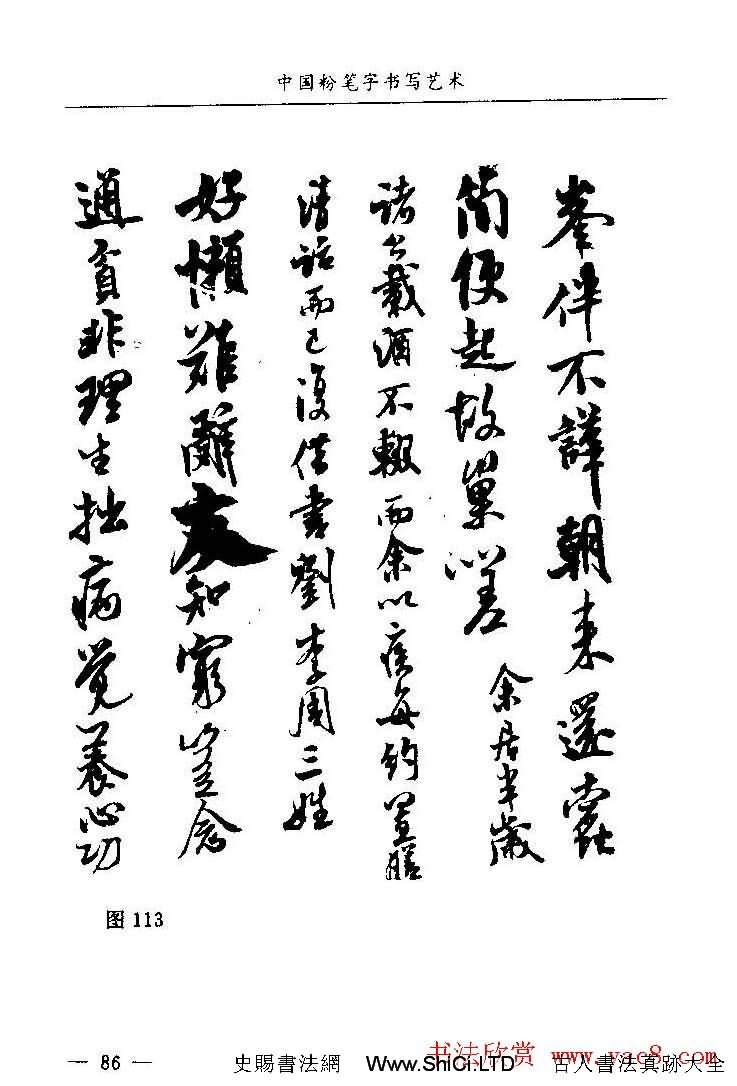 中国粉笔字书写艺术
峯伴不譁朝来還蠹
簡便起故巢嗟 余居半歲
諸公載酒不輟而余以疾每約置膳
清話而已復借書劉李周三姓
好懶難辭友知窮豈念
通貧非理生拙病覺養心功
图 113
— 86 —
书法欣赏 www.yac8.com
史賜書法網 Www.ShiCi.LTD 古人書法真跡大全